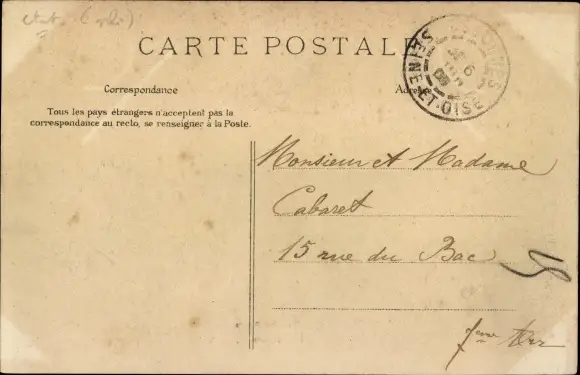 CARTE POSTALE
SEINE-ET-OISE
6
09
Correspondance
Adresse
Tous les pays étrangers n'acceptent pas la
correspondance au recto, se renseigner à la Poste.
Monsieur et Madame
Cabaret
15 rue du Bac
7eme Arr